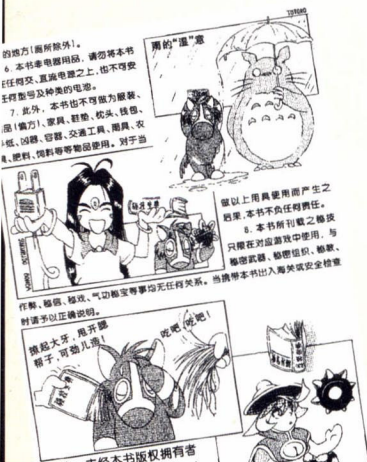 TOTORO
雨的“湿”意
的地方(厕所除外)。
6. 本书非电器用品，请勿将本书
任何交、直流电源之上，也不可安
任何型号及种类的电池。
7. 此外，本书也不可做为服装、
品(偏方)、家具、鞋垫、枕头、钱包、
纸、凶器、容器、交通工具、雨具、农
具、肥料、饲料等等物品使用。对于当
做以上用具使用而产生之
后果，本书不负任何责任。
8. 本书所刊载之秘技
只限在对应游戏中使用，与
秘密武器、秘密组织、秘教、
作弊、秘信、秘戏、气功秘宝等事均无任何关系。当携带本书出入海关或安全检查
时请予以正确说明。
撩起大牙，甩开腮
帮子，可劲儿造！
吃吧！吃吧！
未经本书版权拥有者